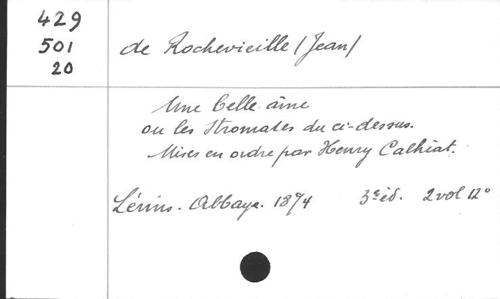 429
501
20
de Rochevieille (Jean)
Une belle âme
ou les Stromates du ci-dessus.
Mises en ordre par Henry Calhiat.
Lérins. Abbaye. 1874 3e éd. 2 vol 12°